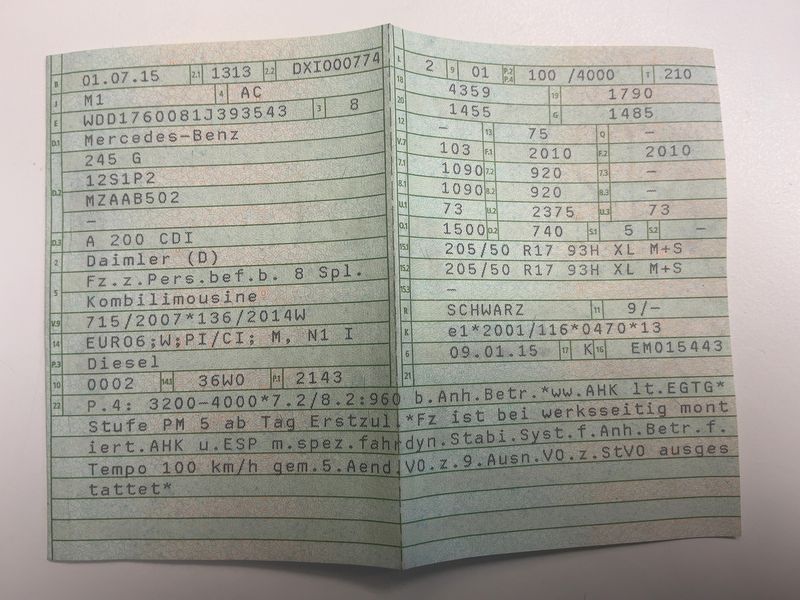 B 01.07.15 2.1 1313 2.2 DXI000774
J M1 4 AC
E WDD1760081J393543 3 8
D.1 Mercedes-Benz
245 G
D.2 12S1P2
MZAAB502
–
D.3 A 200 CDI
2 Daimler (D)
5 Fz.z.Pers.bef.b. 8 Spl.
Kombilimousine
V.9 715/2007*136/2014W
14 EURO6;W;PI/CI; M, N1 I
P.3 Diesel
10 0002 14.1 36W0 P.1 2143
L 2 9 01 P.2 P.4 100 /4000 T 210
18 4359 19 1790
20 1455 G 1485
12 – 13 75 Q –
V.7 103 F.1 2010 F.2 2010
7.1 1090 7.2 920 7.3 –
8.1 1090 8.2 920 8.3 –
U.1 73 U.2 2375 U.3 73
O.1 1500 O.2 740 S.1 5 S.2 –
15.1 205/50 R17 93H XL M+S
15.2 205/50 R17 93H XL M+S
15.3 –
R SCHWARZ 11 9/–
K e1*2001/116*0470*13
6 09.01.15 17 K 16 EM015443
21
22 P.4: 3200-4000*7.2/8.2:960 b.Anh.Betr.*ww.AHK lt.EGTG*
Stufe PM 5 ab Tag Erstzul.*Fz ist bei werksseitig mont
iert.AHK u.ESP m.spez.fahrdyn.Stabi.Syst.f.Anh.Betr.f.
Tempo 100 km/h gem.5.Aend.VO.z.9.Ausn.VO.z.StVO ausges
tattet*